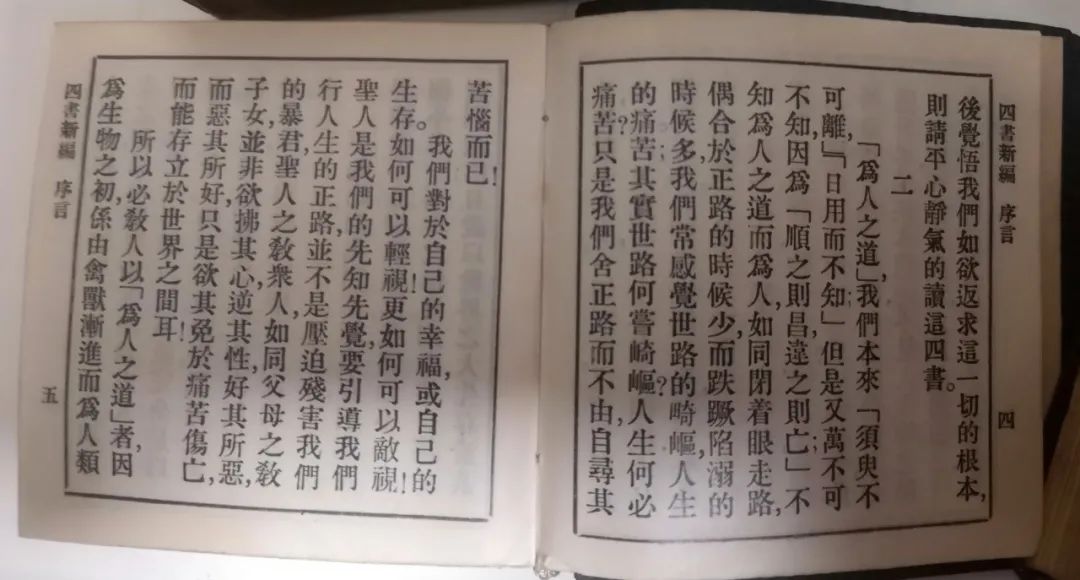 四書新編 序言
四
後覺悟我們如欲返求這一切的根本，
則請平心靜氣的讀這四書。
二
「爲人之道」，我們本來「須臾不
可離」，「日用而不知」；但是又萬不可
不知，因爲「順之則昌違之則亡」；不
知爲人之道而爲人，如同閉着眼走路，
偶合於正路的時候少，而跌蹶陷溺的
時候多我們常感覺世路的崎嶇，人生
的痛苦其實世路何嘗崎嶇？人生何必
痛苦？只是我們舍正路而不由，自尋其
苦惱而已！
我們對於自己的幸福，或自己的
生存如何可以輕視！更如何可以敵視！
聖人是我們的先知先覺，要引導我們
行人生的正路並不是壓迫殘害我們
的暴君，聖人之敎衆人，如同父母之敎
子女，並非欲拂其心，逆其性，好其所惡，
而惡其所好，只是欲其免於痛苦傷亡，
而能存立於世界之間耳！
所以必敎人以「爲人之道」者，因
爲生物之初，係由禽獸漸進而爲人類
四書新編 序言
五